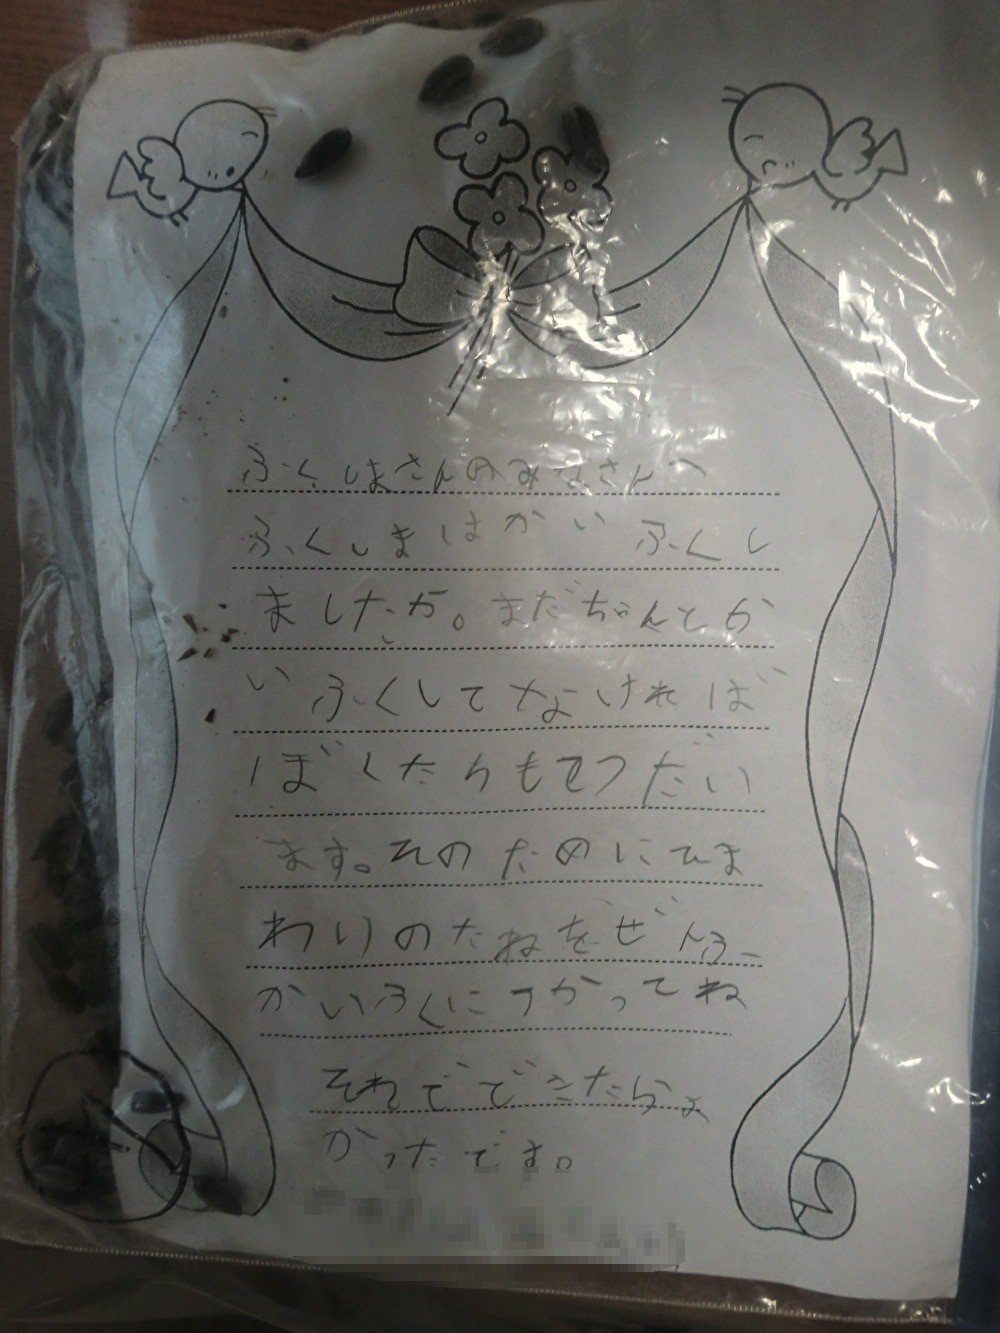 ふくしまさんのみなさんへ
ふくしまはかいふくし
ましたか。まだぢゃんとか
いふくしてなければ
ぼくたちもてつだい
ます。そのためにひま
わりのたねをぜんぶ
かいふくにつかってね
それでできたらよ
かったです。